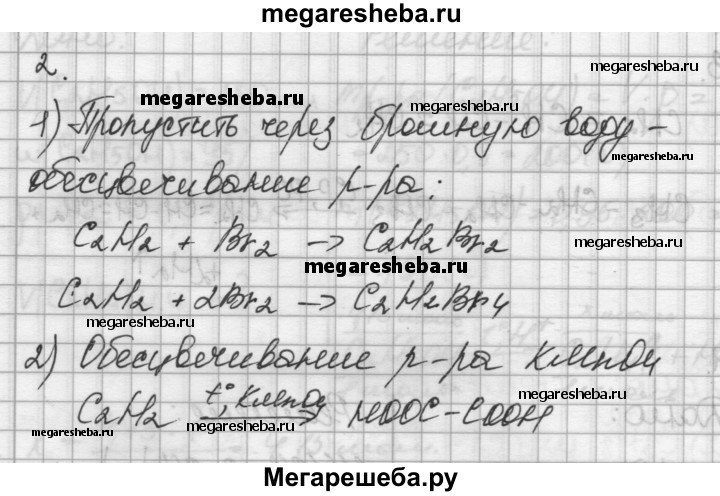 megaresheba.ru
2.
megaresheba.ru
megaresheba.ru
1) Пропустить через бромную воду -
megaresheba.ru
обесцвечивание р-ра:
C2H2 + Br2 → C2H2Br2
megaresheba.ru
C2H2 + 2Br2 → C2H2Br4
megaresheba.ru
2) Обесцвечивание р-ра KMnO4
megaresheba.ru
C2H2 t°, KMnO4 → HOOC-COOH
megaresheba.ru
megaresheba.ru
Мегарешеба.ру